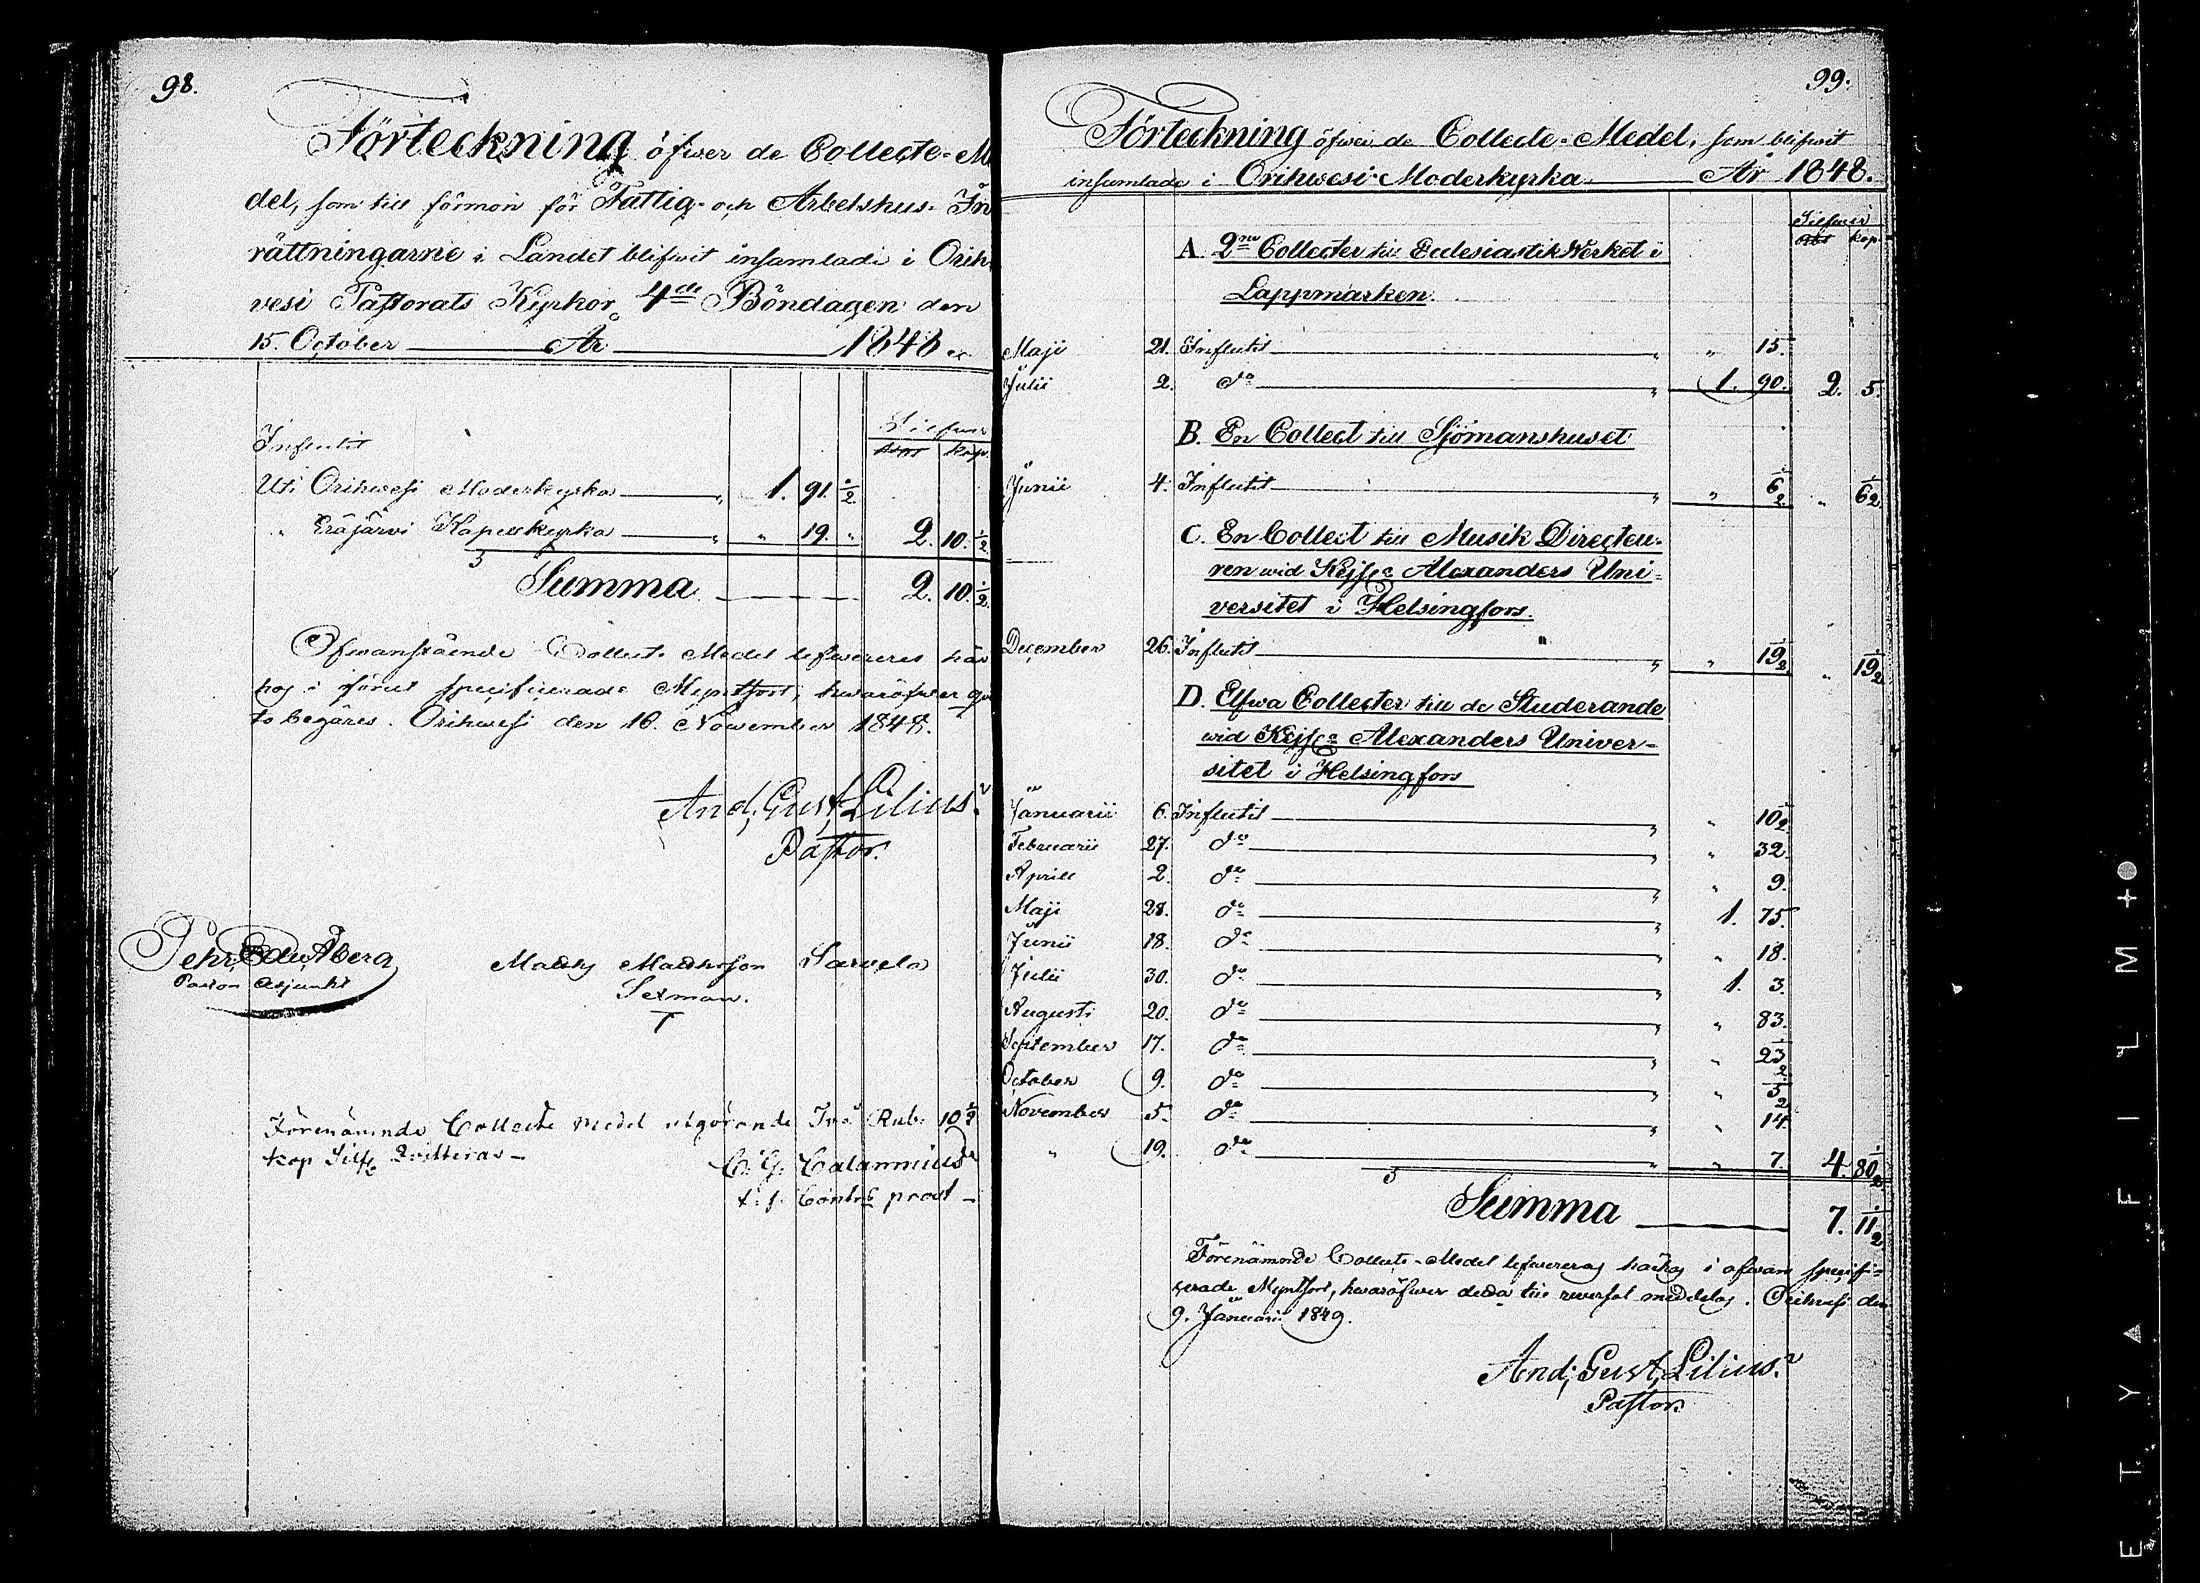 98.
Förteckning öfwer de Collecte-Me
del, som till förmon för Fattig- och Arbetshus-In
rättningarne i Landet blifwit insamlade i Orih
vesi Pastorats Kyrkor 4de Böndagen den
15. October År 1848.
Silfwer
Influtit Rbl kop.
Uti Orihwesi Moderkyrka " 1. 91. 1/2
" Eräjärvi Kapellkyrka " " 19. " 2. 10. 1/2
Summa 2. 10. 1/2
Ofwanstående Collect-Medel lefwereres här
hos i förut specificerade Myntsort, hwaröfwer qvi
to begäres. Orihwesi den 16. November 1848.
And; Gust; Lilius.
Pastor.
Pehr Edw Åberg
Pastors Adjunkt
Matths Mattsson Sarvela
Sexman.
Förenämnde Collecte Medel utgörande Två Rub. 10 1/2
kop Silf Qvitteras
C. G. Calamnius
t. f. Contr prost
99.
Förteckning öfwer de Collecte-Medel, som blifwit
insamlade i Orihwesi Moderkyrka År 1848.
Silfwer
Rbl kop.
A. 2ne Collecter till Ecclesiastik Werket i
Lappmarken.
Maji 21. Influtit " " 15.
Julii 2. do " 1. 90. 2. 5.
B. En Collect till Sjömanshuset
Junii 4. Influtit " " 6 1/2 " 6 1/2
C. En Collect till Musik Directeu-
ren wid Kejs. Alexanders Uni-
versitet i Helsingfors.
December 26. Influtit " " 19 1/2 " 19 1/2
D. Elfwa Collecter till de Studerande
wid Kejs. Alexanders Univer-
sitet i Helsingfors
Januarii 6. Influtit " " 10 1/2
Februarii 27. do " " 32.
Aprill 2. do " " 9.
Maji 28. do " 1. 75.
Junii 18. do " " 18.
Julii 30. do " 1. 3.
Augusti 20. do " " 83.
September 17. do " " 23 1/2
October 9. do " " 5 1/2
November 5. do " " 14.
" 19. do " " 7. 4. 80 1/2
Summa 7. 11 1/2
Förenämnde Collecte-Medel lefwereras härhos i ofwan specifi-
cerade Myntsort, hwaröfwer detta till reversal meddelas. Orihwesi den
9. Januarii 1849.
And; Gust; Lilius.
Pastor
E T Y A F I L M